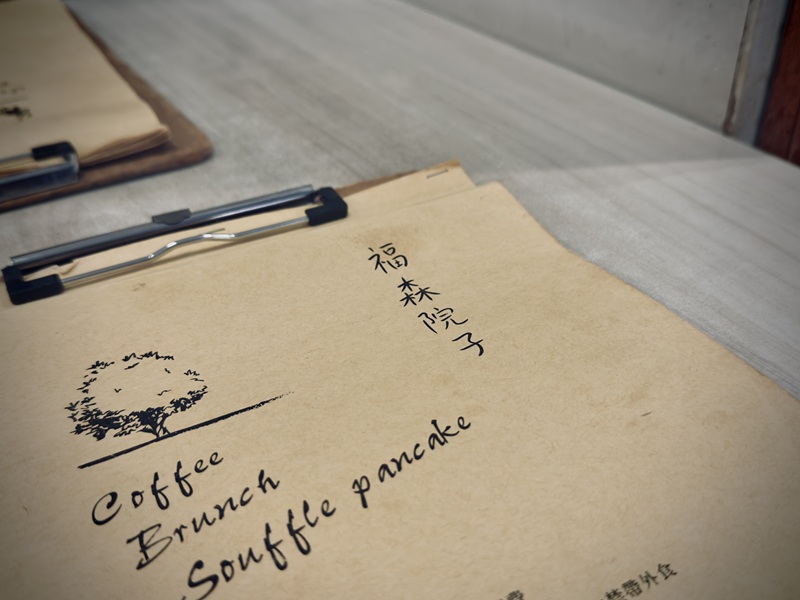 福森院子
Coffee
Brunch
Souffle pancake
禁帶外食